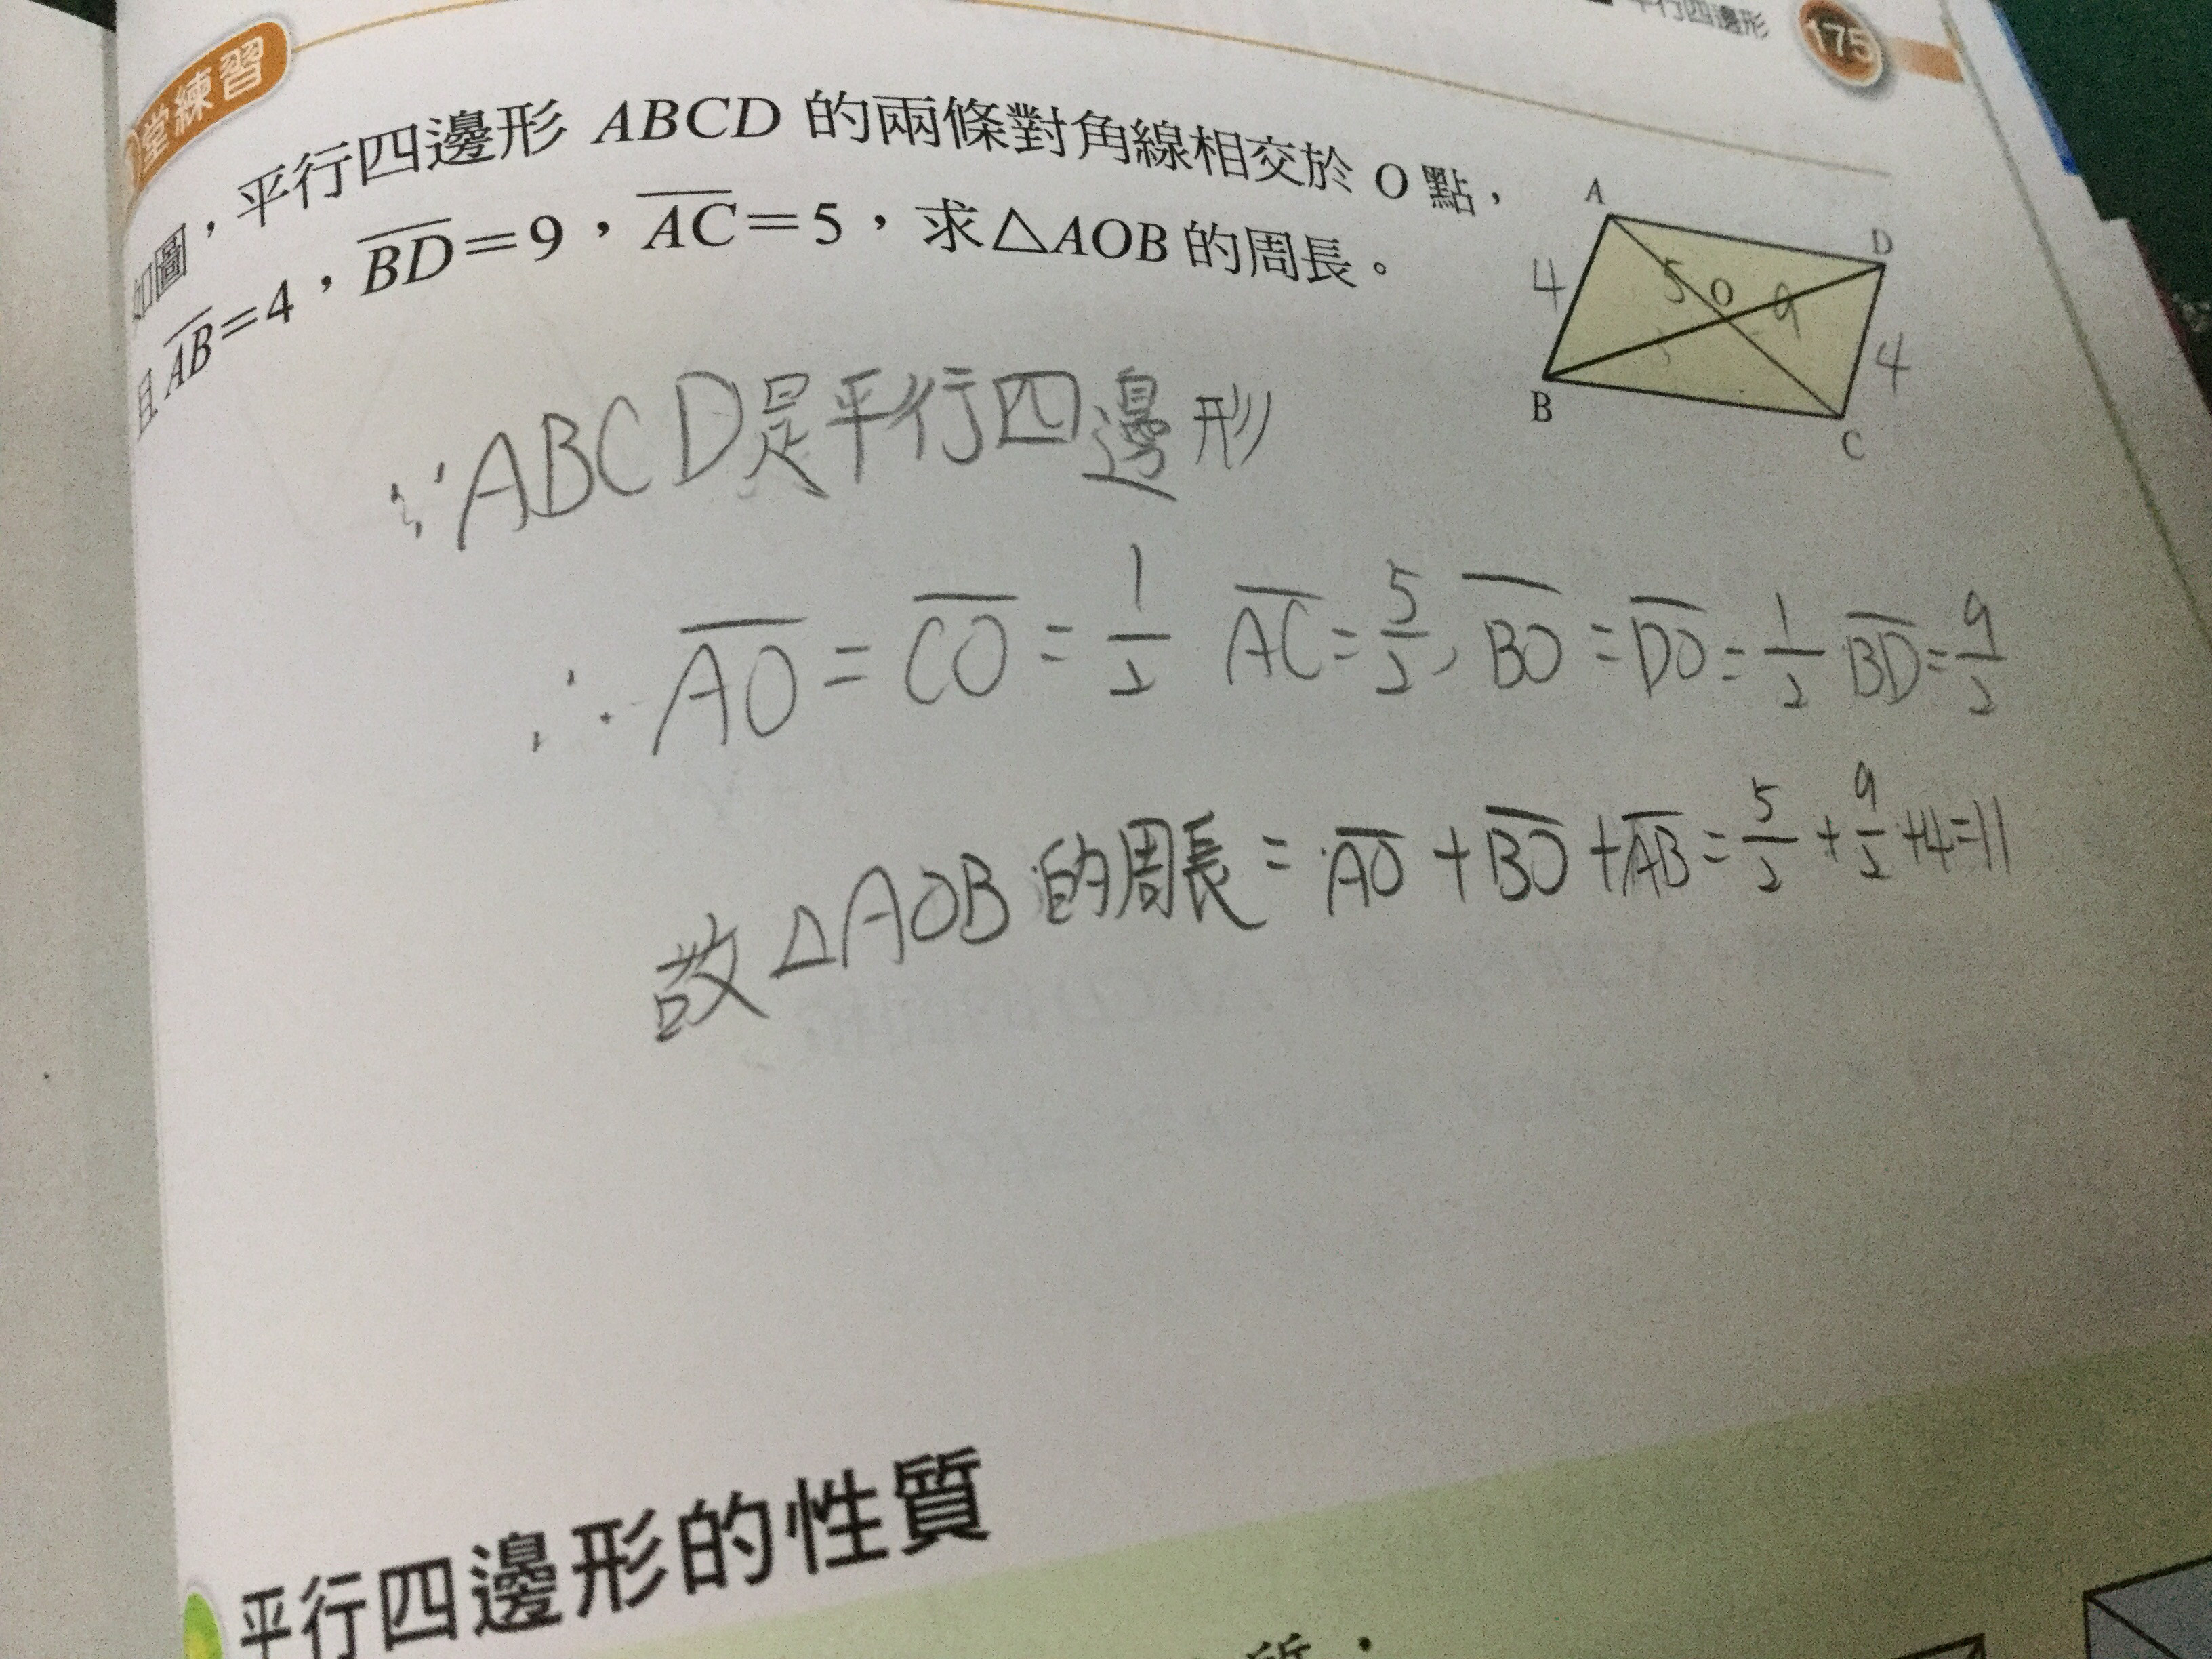 平行四邊形 175
堂練習
如圖，平行四邊形 ABCD 的兩條對角線相交於 O 點，
且 AB=4，BD=9，AC=5，求△AOB 的周長。
A
D
4 5 O 9
4
B
C
∵ABCD是平行四邊形
∴ AO = CO = 1/2 AC = 5/2, BO = DO = 1/2 BD = 9/2
故△AOB 的周長 = AO + BO + AB = 5/2 + 9/2 + 4 = 11
平行四邊形的性質